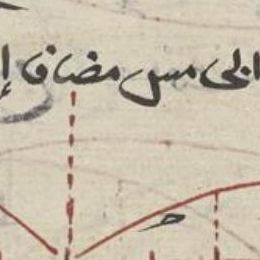 الى مس مضاف إ
ح